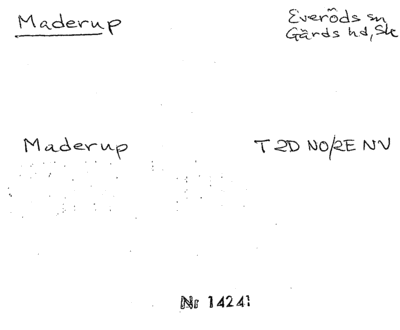 Maderup
Everöds sn
Gärds hd, Sk
Maderup
T 2D NO/2E NV
Nr 14241